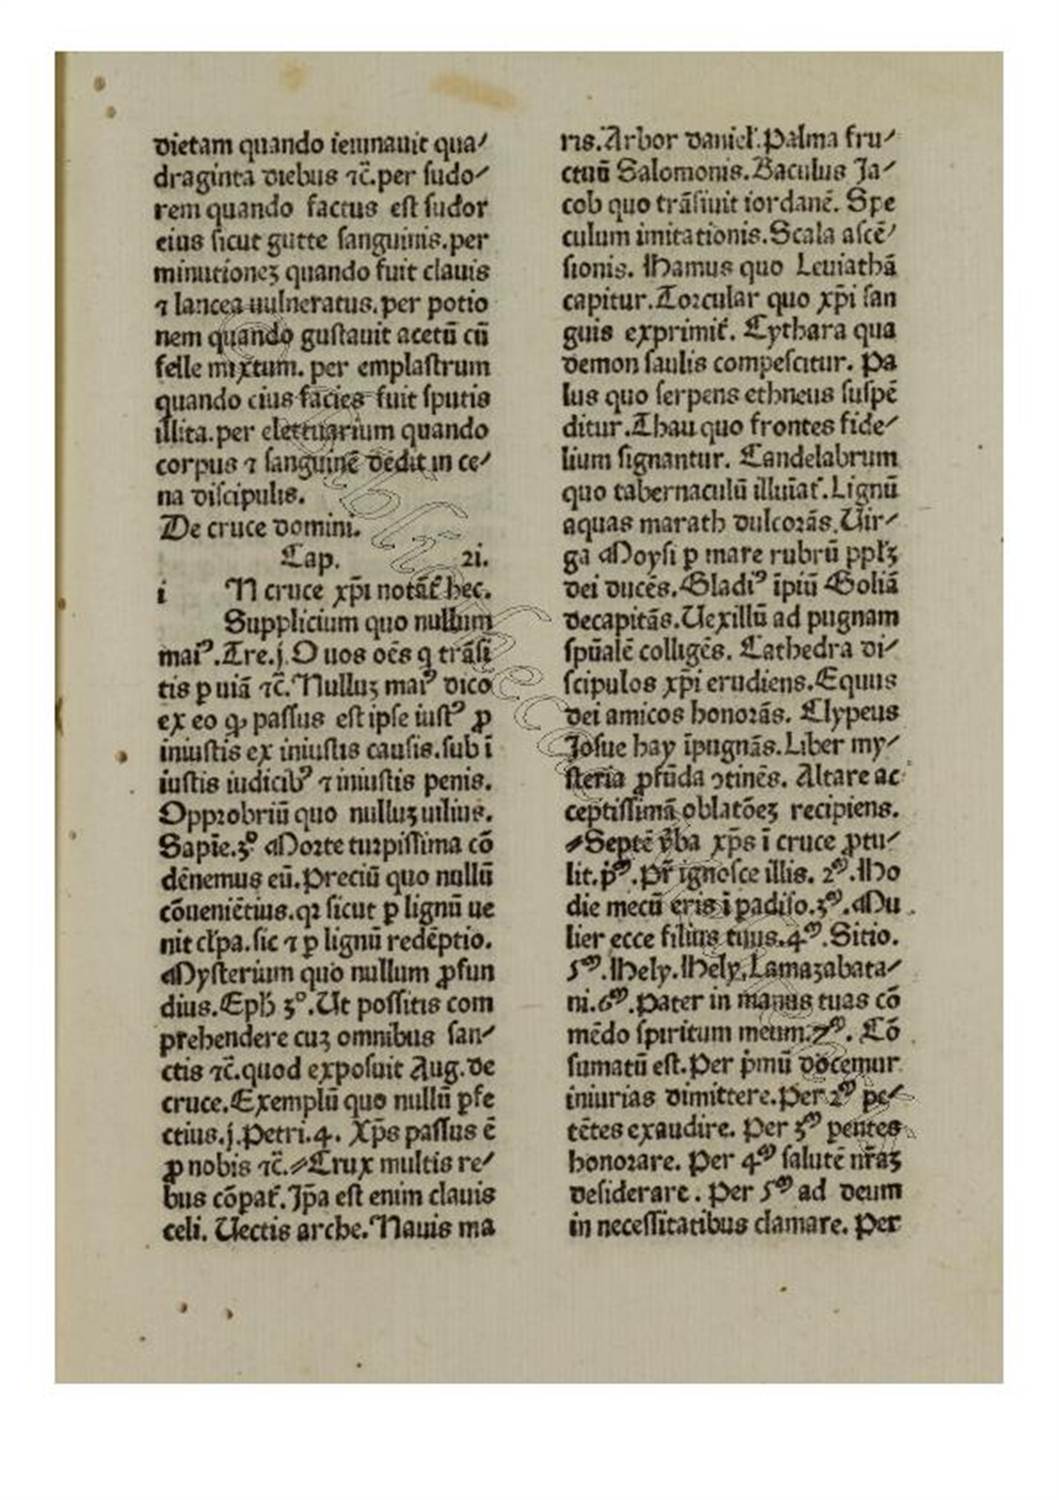 dietam quando ieiunauit qua/
draginta diebus ⁊c̃.per sudo/
rem quando factus est sudor
eius sicut gutte sanguinis.per
minutionez quando fuit clauis
⁊ lancea uulneratus.per potio
nem quando gustauit acetū cū
felle mixtum. per emplastrum
quando eius facies fuit sputis
illita.per electuarium quando
corpus ⁊ sanguinē dedit in ce/
na discipulis.
De cruce domini.
Cap. 21.
i N cruce xp̄i notāt᷑ hec.
Supplicium quo nullum
maiꝰ.Tre.j.O uos oēs q trāsi
tis ꝑ uiā ⁊c̃.Nulluz maiꝰ dico
ex eo ꝙ passus est ipse iustꝰ ꝓ
iniustis ex iniustis causis.sub ī
iustis iudicibꝰ ⁊ iniustis penis.
Opprobriū quo nulluz uilius.
Sapīe.3º Morte turpissima cō
dēnemus eū.Preciū quo nullū
cōueniētius.qꝛ sicut ꝑ lignū ue
nit cl̄pa.sic ⁊ ꝑ lignū redēptio.
Mysterium quo nullum ꝓfun
dius.Eph̄ 3º.Ut possitis com
prehendere cuz omnibus san/
ctis ⁊c̃.quod exposuit Aug.de
cruce.Exemplū quo nullū ꝑfe
ctius.j.Petri.4. Xp̄s passus ē
ꝓ nobis ⁊c̃.⸗Crux multis re/
bus cōpat᷑.Ip̄a est enim clauis
celi. Uectis arche.Nauis ma
ris.Arbor daniel᷑.Palma fru/
ctuū Salomonis.Baculus Ja/
cob quo trāsiuit iordanē. Spe
culum imitationis.Scala ascē/
sionis. Hamus quo Leuiathā
capitur.Torcular quo xp̄i san
guis exprimit᷑. Cythara qua
demon saulis compescitur. Pa
lus quo serpens ethneus suspē
ditur.Thau quo frontes fide/
lium signantur. Candelabrum
quo tabernaculū illuīat᷑.Lignū
aquas marath dulcorās.Uir/
ga Moysi ꝑ mare rubrū ppl᷑ꝫ
dei ducēs.Gladiꝰ īpiū Goliā
decapitās.Uexillū ad pugnam
spūalē colligēs. Cathedra di/
scipulos xp̄i erudiens.Equus
dei amicos honorās. Clypeus
Josue hay īpugnās.Liber my/
steria ꝓfūda ↄtinēs. Altare ac
ceptissimā oblatōez recipiens.
⸗Septē v̄ba xp̄s ī cruce ꝓtu/
lit.pᵐ.Pr̄ ignosce illis. 2ᵐ.Ho
die mecū eris ī padiso.3ᵐ.Mu
lier ecce filius tuus.4ᵐ.Sitio.
5ᵐ.Hely.Hely.Lamazabata/
ni.6ᵐ.Pater in manus tuas cō
mēdo spiritum meum.7ᵐ. Cō
sumatū est.Per pͥmū docemur
iniurias dimittere.Per 2ᵐ pe/
tētes exaudire. Per 3ᵐ pentes
honorare. Per 4ᵐ salutē nr̄aꝫ
desiderare. Per 5ᵐ ad deum
in necessitatibus clamare. Per